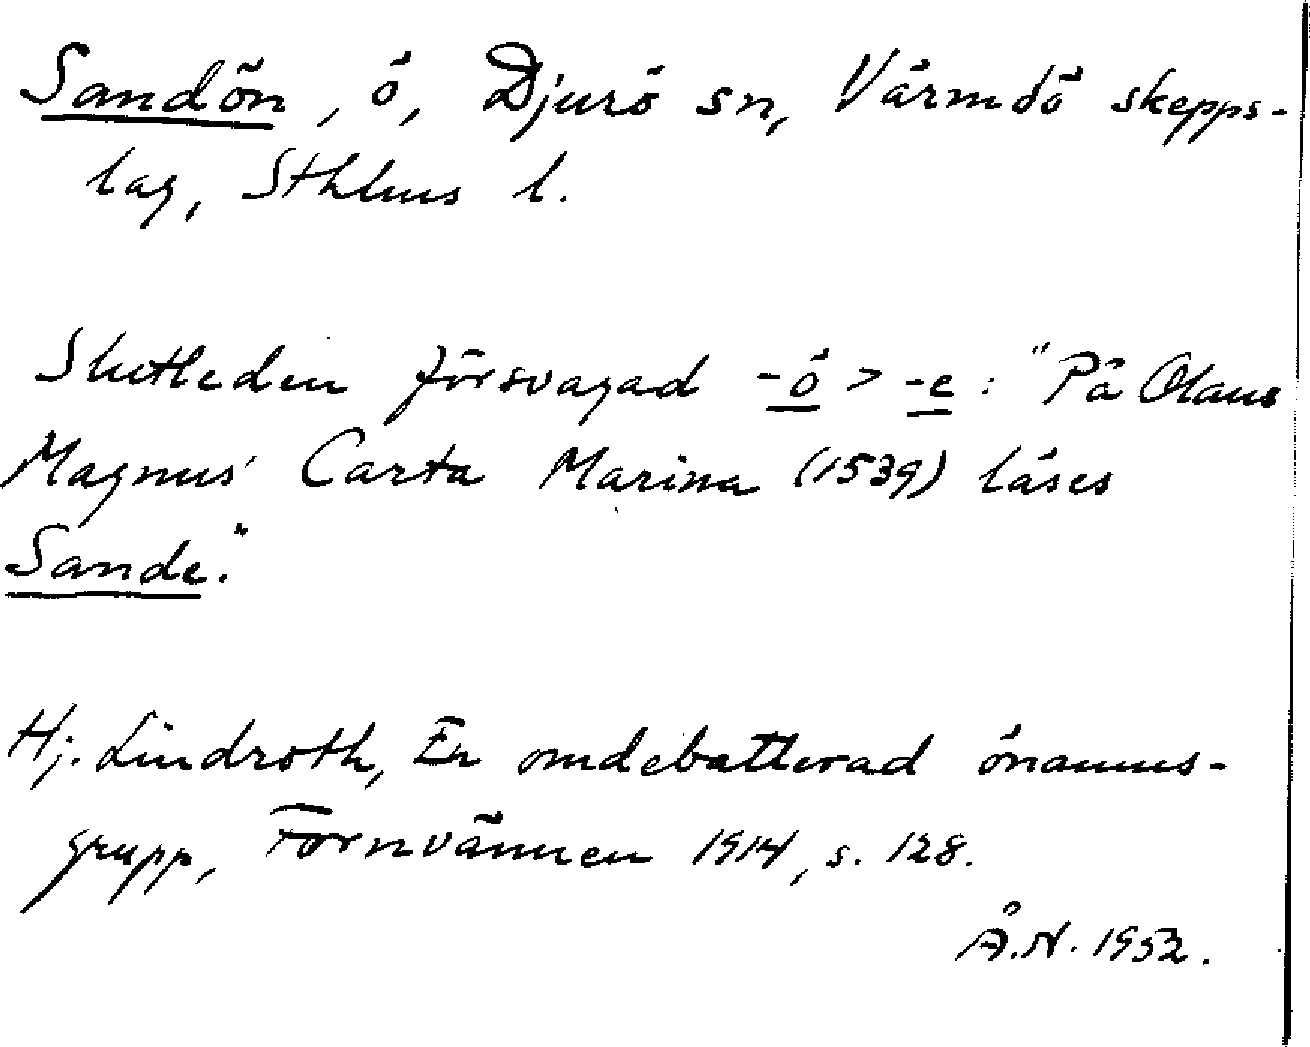 Sandön, ö, Djurö sn, Värmdö skepps-
lag, Sthlms l.
Slutleden försvagad -ö > -e: "På Olaus
Magnus' Carta Marina (1539) läses
Sande."
Hj. Lindroth, En omdebatterad önamns-
grupp, Fornvännen 1914, s. 128.
Å.N. 1952.